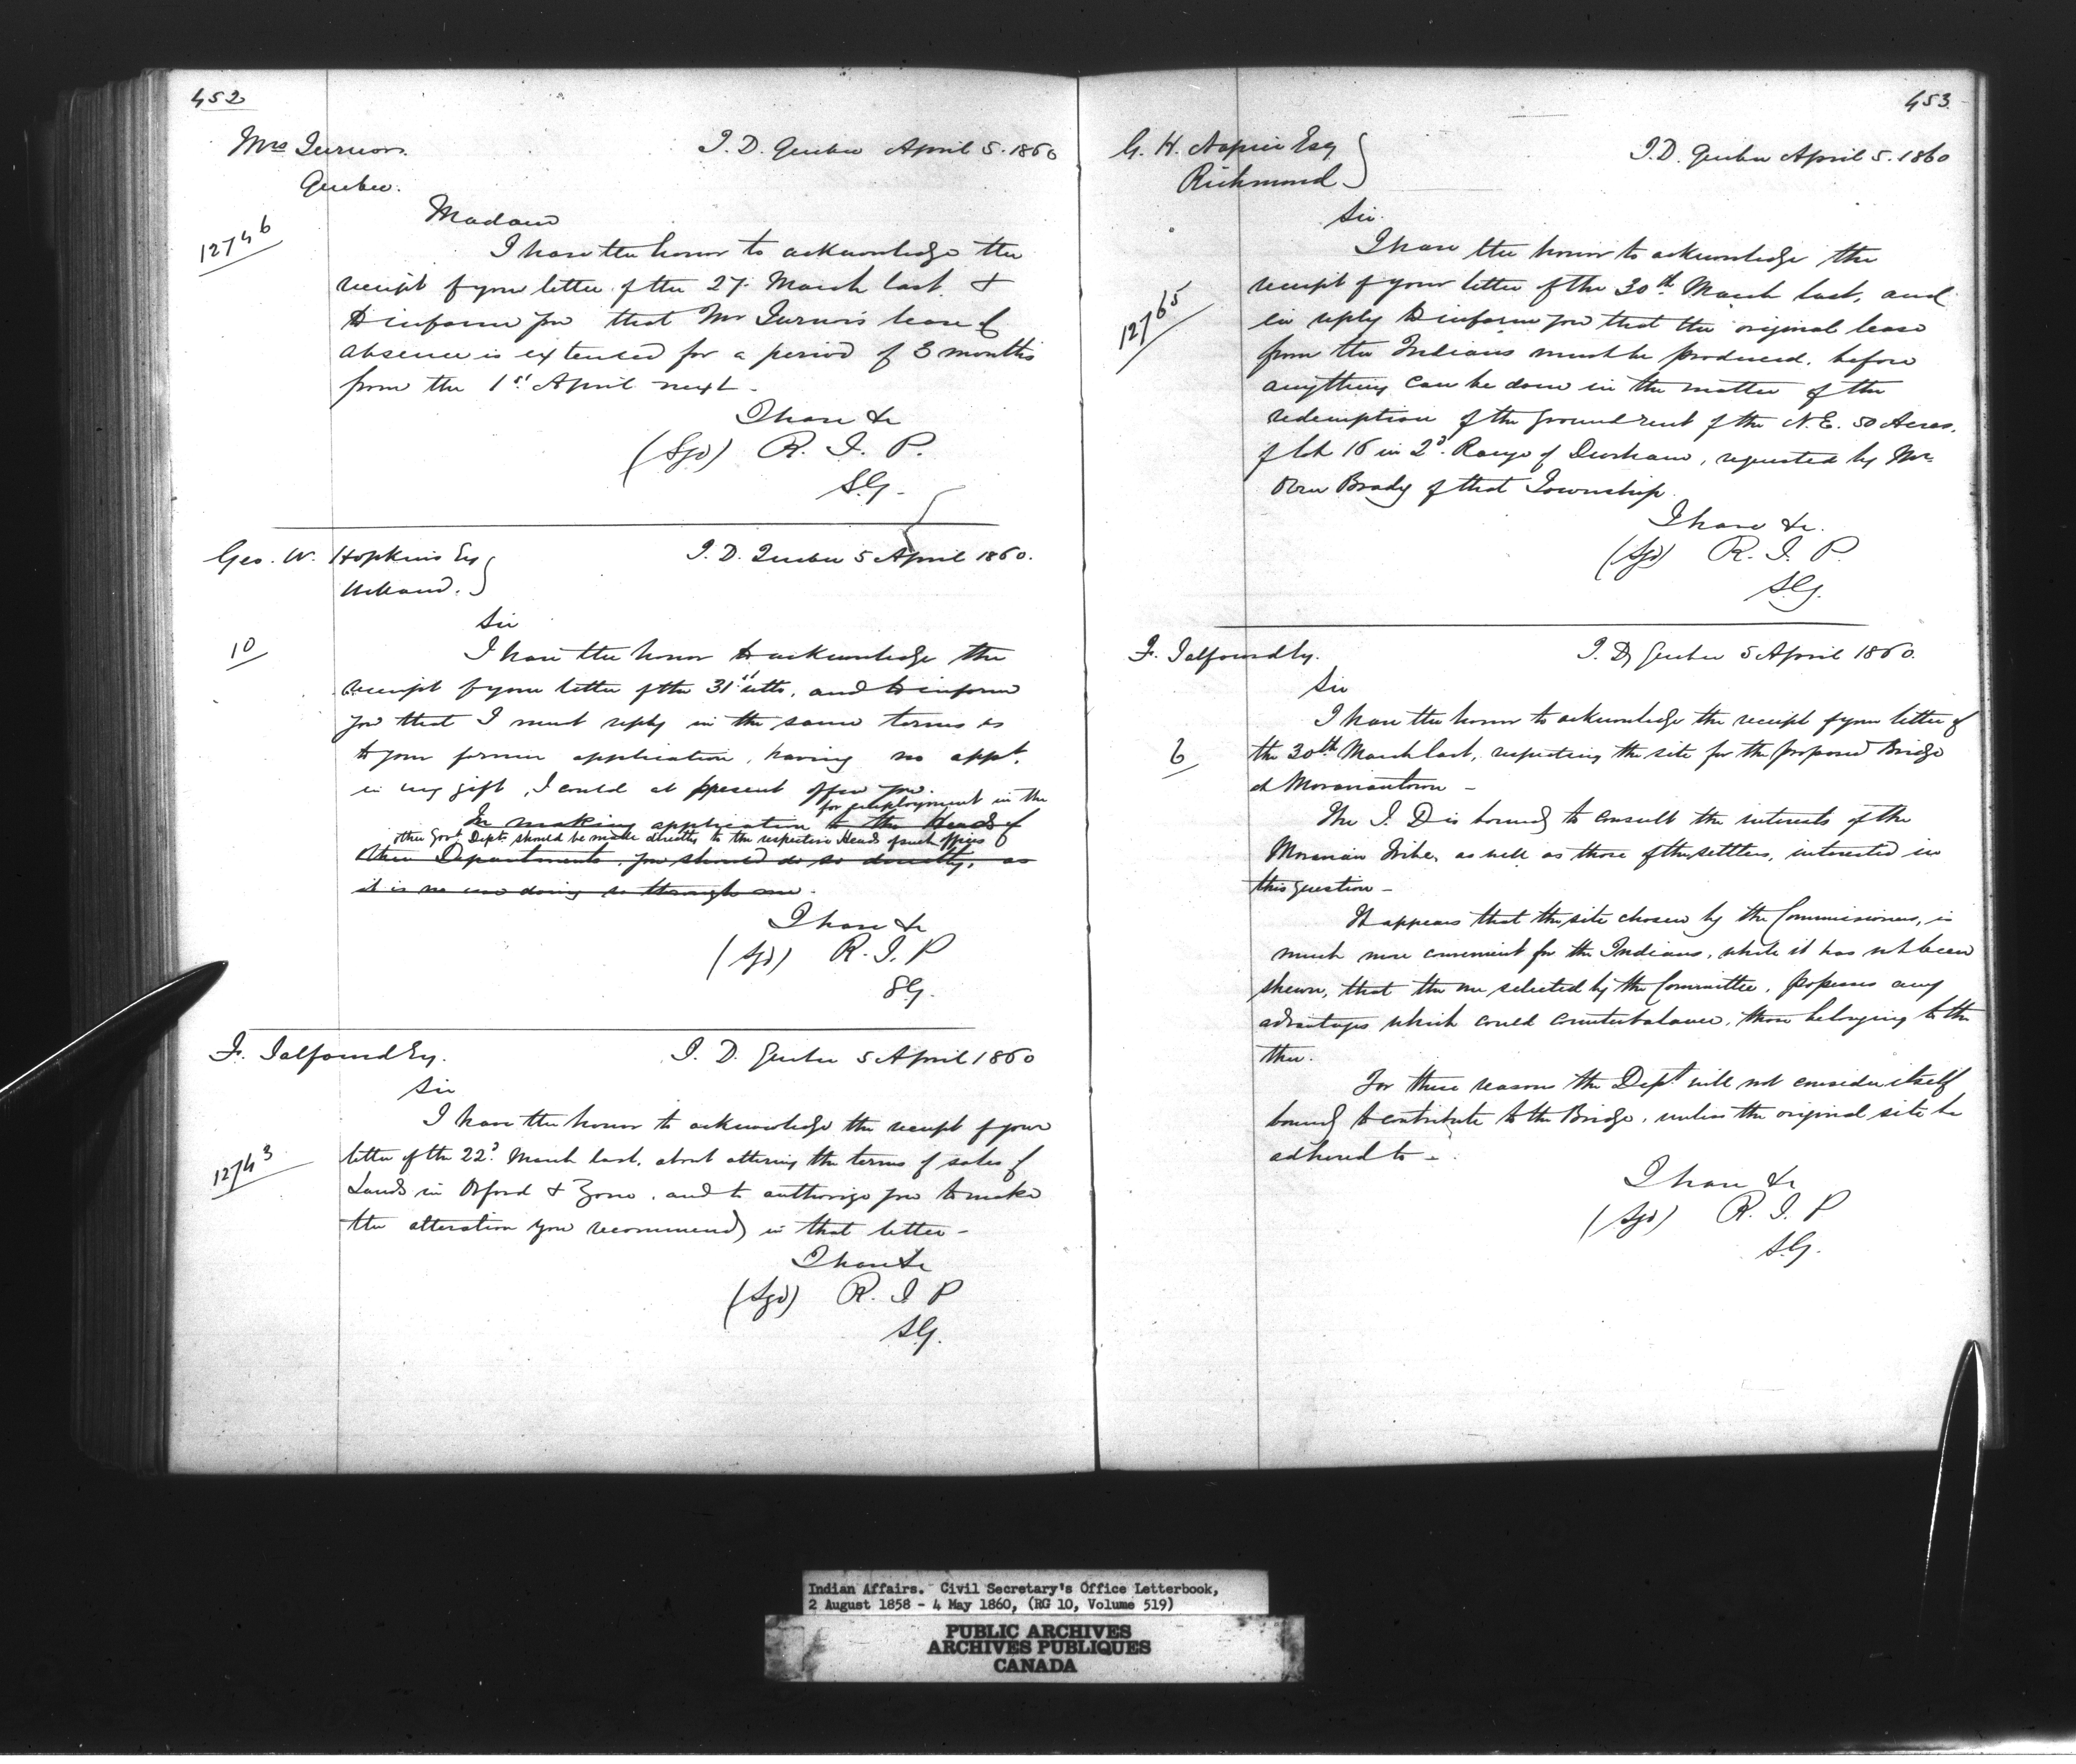 452
Mrs Turnor.
Quebec.
I. D. Quebec April 5. 1860
12746
Madam
I have the honor to acknowledge the
receipt of your letter of the 27. March last &
to inform you that Mr Turnor's leave of
absence is extended for a period of 3 months
from the 1st April next -
I have &c
(Sgd) R. J. P.
S.G.
Geo. W. Hopkins Esq
I. D. Quebec 5 April 1860.
10
Sir
I have the honor to acknowledge the
receipt of your letter of the 31st ulto, and to inform
you that I must reply in the same terms as
to your former application, having no appt.
in my gift, I could at present offer you.
for employment in the
In making application to the Heads of
other Govt Depts should be made directly to the respective Heads of such offices
other Departments, you should do so directly, as
it is no use doing so through me.
I have &c
(Sgd) R. J. P
SG.
F. Talfourd Esq.
I. D. Quebec 5 April 1860
Sir
I have the honor to acknowledge the receipt of your
12743
letter of the 22d March last, about altering the terms of sales of
Lands in Orford & Zone, and to authorize you to make
the alteration you recommend in that letter -
I have &c
(Sgd) R. J. P
S.G.
453
G. H. Napier Esq
Richmond
I. D. Quebec April 5. 1860
Sir.
I have the honor to acknowledge the
12765
receipt of your letter of the 30th March last, and
in reply to inform you that the original lease
from the Indians must be produced, before
anything can be done in the matter of the
redemption of the ground rent of the N.E. 50 Acres,
of lot 16 in 2d. Range of Durham, requested by Mr
Brady of that Township
I have &c.
(Sgd) R. J. P.
S.G.
F. Talfourd Esq.
I. D. Quebec 5 April 1860.
Sir
I have the honor to acknowledge the receipt of your letter of
6
the 30th March last, respecting the site for the proposed Bridge
at Moraviantown -
The I. D is bound to consult the interests of the
Moravian Tribe, as well as those of the settlers, interested in
this question -
It appears that the site chosen by the Commissioners, is
much more convenient for the Indians, while it has not been
shewn, that the one selected by the Committee, possesses any
advantages which could counterbalance, those belonging to the
other.
For these reasons the Dept. will not consider itself
bound to contribute to the Bridge, unless the original site be
adhered to -
I have &c
(Sgd) R. J. P
S.G.
Indian Affairs. Civil Secretary's Office Letterbook,
2 August 1858 - 4 May 1860, (RG 10, Volume 519)
PUBLIC ARCHIVES
ARCHIVES PUBLIQUES
CANADA